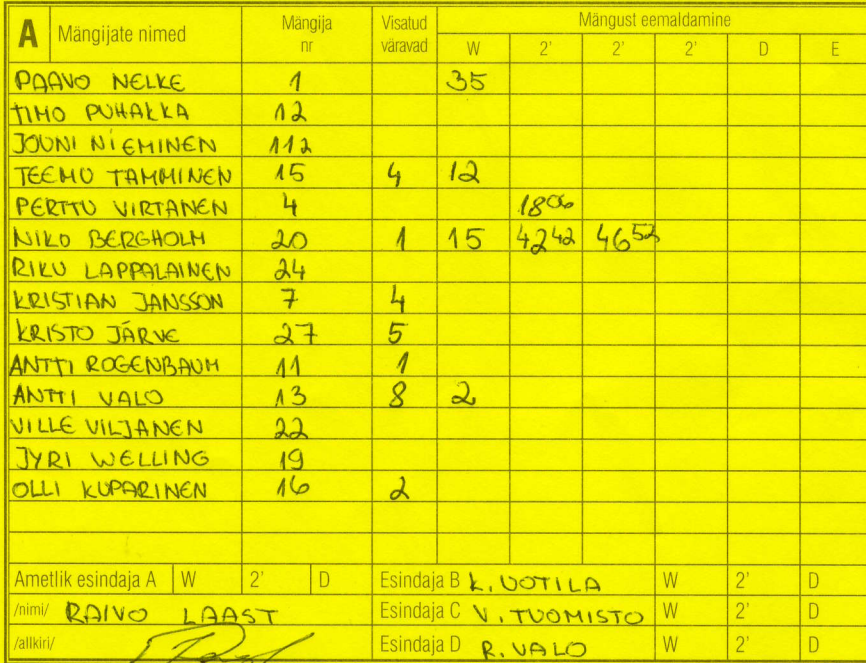 A Mängijate nimed Mängija nr Visatud väravad Mängust eemaldamine
W 2' 2' 2' D E
PAAVO NELKE 1 35
TIMO PUHAKKA 12
JOUNI NIEMINEN 112
TEEMU TAMMINEN 15 4 12
PERTTU VIRTANEN 4 18 06
NIKO BERGHOLM 20 1 15 42 42 46 52
RIKU LAPPALAINEN 24
KRISTIAN JANSSON 7 4
KRISTO JÄRVE 27 5
ANTTI ROGENBAUM 11 1
ANTTI VALO 13 8 2
VILLE VILJANEN 22
JYRI WELLING 19
OLLI KUPARINEN 16 2
Ametlik esindaja A W 2' D Esindaja B K. UOTILA W 2' D
/nimi/ RAIVO LAAST Esindaja C V. TUOMISTO W 2' D
/allkiri/ Esindaja D R. VALO W 2' D